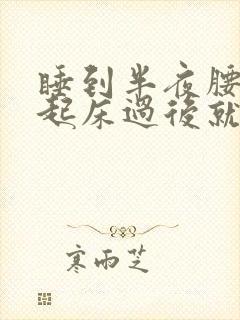 睡到半夜腰
起床過後就
寒雨芝